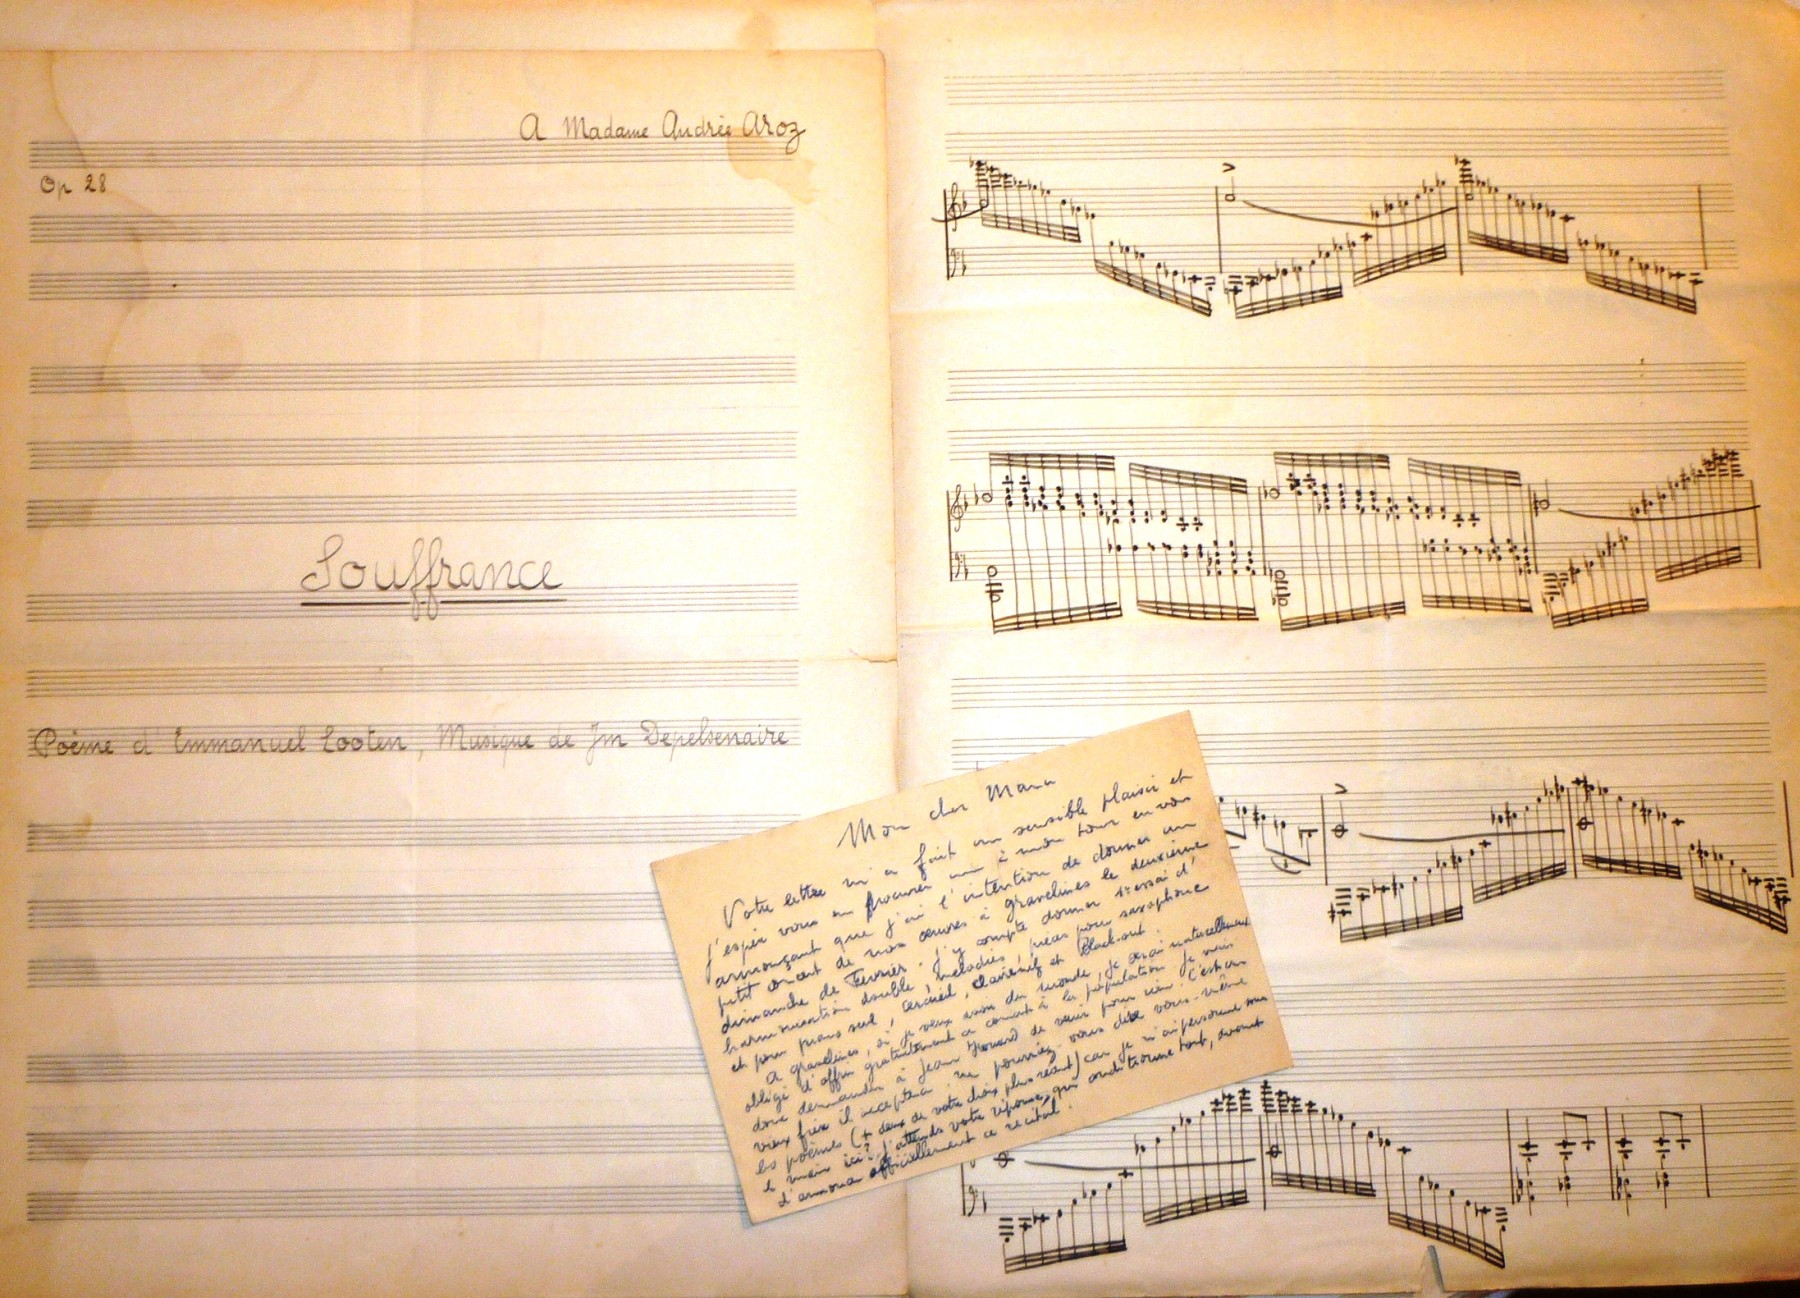 A Madame Andrée Aroz
Op 28
Souffrance
Poème d'Emmanuel Looten, Musique de Jm Depelsenaire
Mon cher
Votre lettre m'a fait un sensible plaisir et
j'espère vous en procurer un à mon tour en vous
annonçant que j'ai l'intention de donner un
petit concert de nos œuvres à gravelines le deuxième
dimanche de Février. J'y compte donner 1er essai d'
harmonisation double, mélodies, pièces pour saxophone
et pour piano seul, cercueil, et Black-out.
A gravelines, si je veux avoir du monde, je serai naturellement
obligé d'offrir gratuitement ce concert à la population. Je vais
donc demander à Jean de venir pour rien. C'est un
vieux frère il acceptera ne pourriez-vous dire vous-même
les poèmes (+ deux de votre choix plus récent) car je n'ai personne sous
la main ici? J'attends votre réponse, qui conditionne tout, avant
d'annoncer officiellement ce récital.